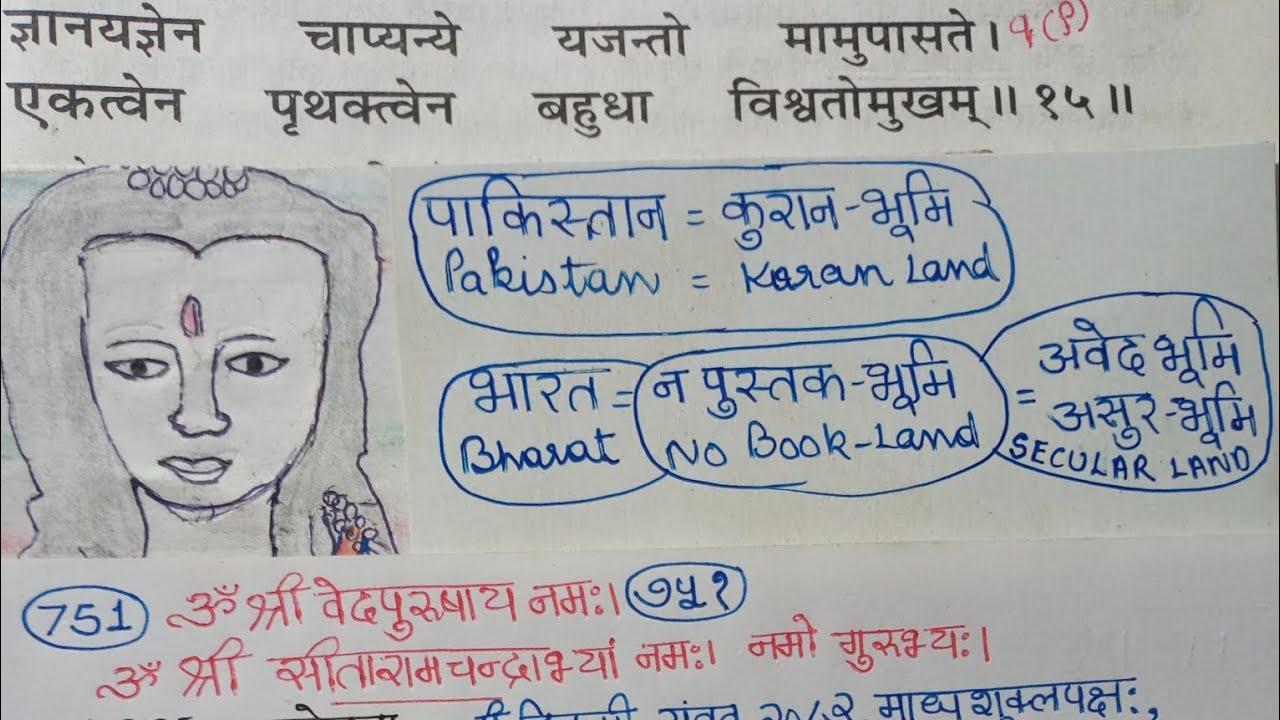 ज्ञानयज्ञेन चाप्यन्ये यजन्तो मामुपासते। ९(9)
एकत्वेन पृथक्त्वेन बहुधा विश्वतोमुखम्॥ १५॥
पाकिस्तान = कुरान-भूमि
Pakistan = Koran Land
भारत = न पुस्तक-भूमि = अवेद भूमि
असुर-भूमि
Bharat No Book-Land SECULAR LAND
751 ॐ श्री वेदपुरुषाय नमः। ७५१
ॐ श्री सीतारामचन्द्राभ्यां नमः। नमो गुरुभ्यः।
माघ शुक्लपक्षः,